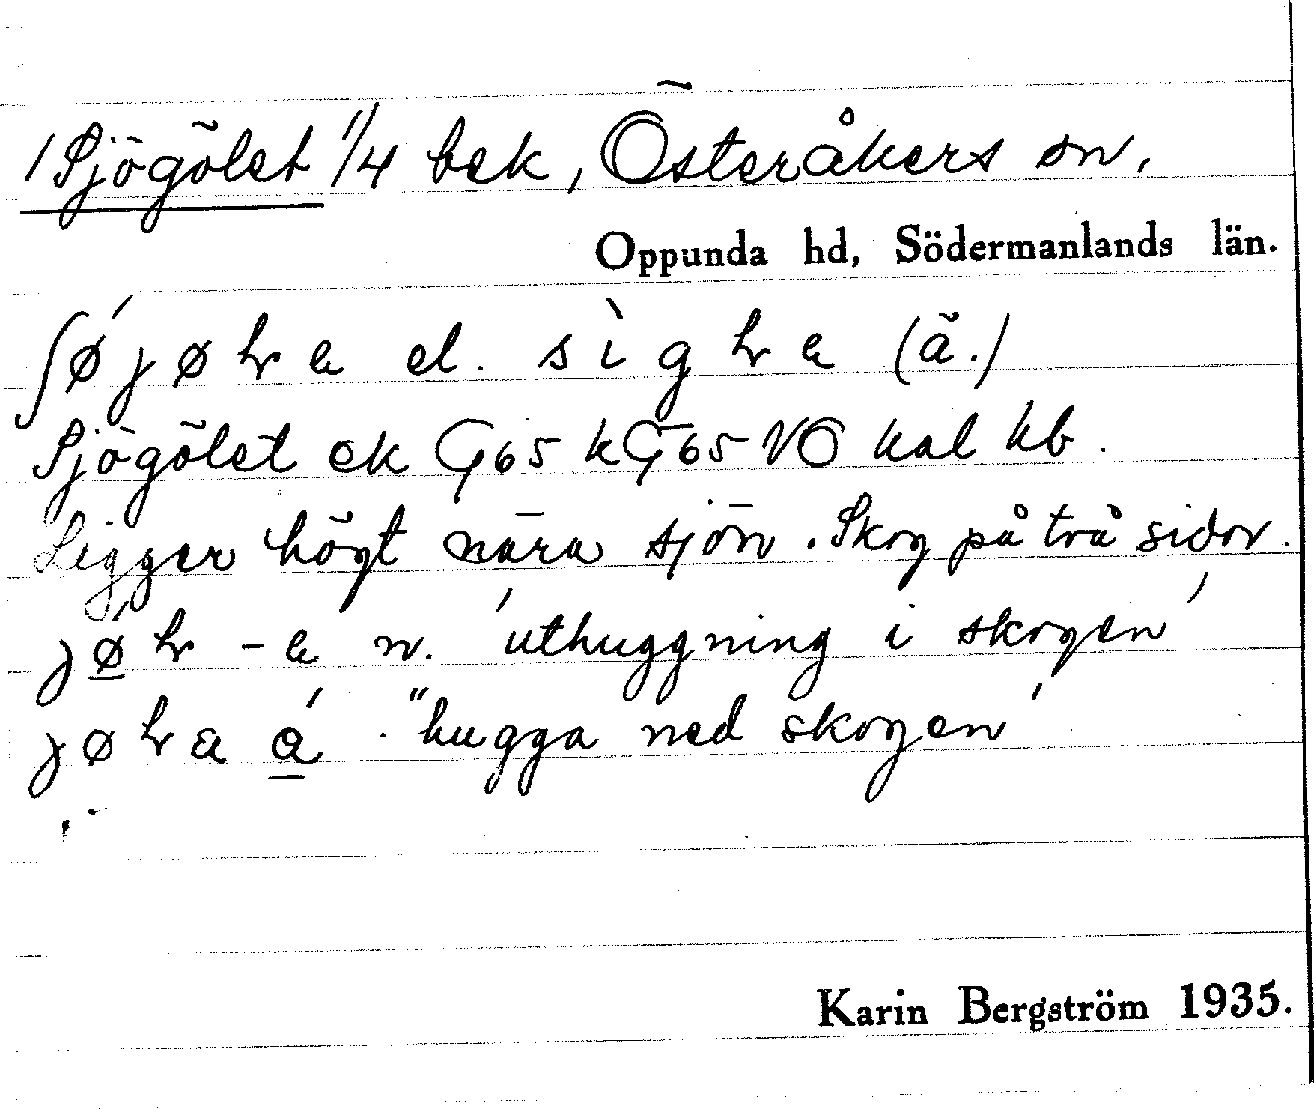 /Sjögölet 1/4 bek, Österåkers sn,
Oppunda hd, Södermanlands län.
ʃǿjøɫa el. sìgɫa (ä.)
Sjögölet ek G65 kG65 VO kal kb.
Ligger högt nära sjön. Skog på två sidor.
jǿ̲ɫ -a n. 'uthuggning i skogen'
jøɫa á̲ "hugga ned skogen'
Karin Bergström 1935.